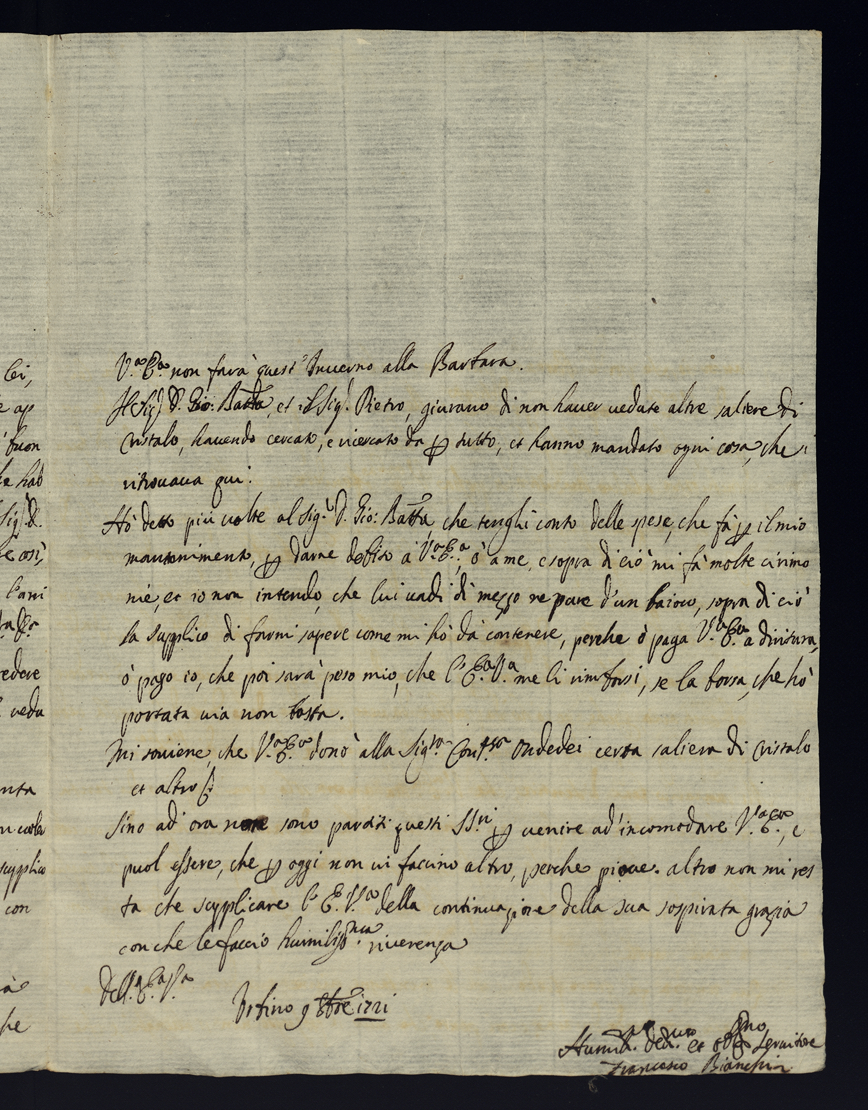 lei,
e ap
buon
he hab
Sig.r D.
e così,
l'ani
redere
vedu
nta
n vole
supplico
con
he
V.a E.a non farà quest'Inverno alla Barbara.
Il Sig.r D. Gio: Batta, et il Sig.r Pietro, giurano di non haver vedute altre saliere di
cristalo, havendo cercato, e ricercato da p tutto, et hanno mandato ogni cosa, che si
ritrovava qui.
Hò detto più volte al Sig.r D. Gio: Batta che tenghi conto delle spese, che fà p il mio
mantenimento, p darne debito à V.a E.a, ò a me, e sopra di ciò mi fà molte cirimo
nie, et io non intendo, che lui vadi di mezzo ne pure d'un baioco, sopra di ciò
la supplico di farmi sapere come mi hò dà contenere, perche ò paga V.a E.a a diritura,
ò pago io, che poi sarà peso mio, che l'E.a V.a me li rimborsi, se la borsa, che hò
portata via non basta.
Mi soviene, che V.a E.a donò alla Sig.ra Cont.sa Ondedei certa saliera di cristalo
et altro
Sino ad' ora non sono partiti questi SS.ri p venire ad' incomodare V.a E.a, e
puol essere, che p oggi non vi faccino altro, perche piove. altro non mi res
ta che supplicare l'E. V.a della continuazione della sua sospirata grazia
con che le faccio humiliss.ma riverenza
Dell'E.a V.a
Urbino 9 Xbre 1721
Humil.mo dev.mo et obb.mo Servitore
Francesco Bianchini